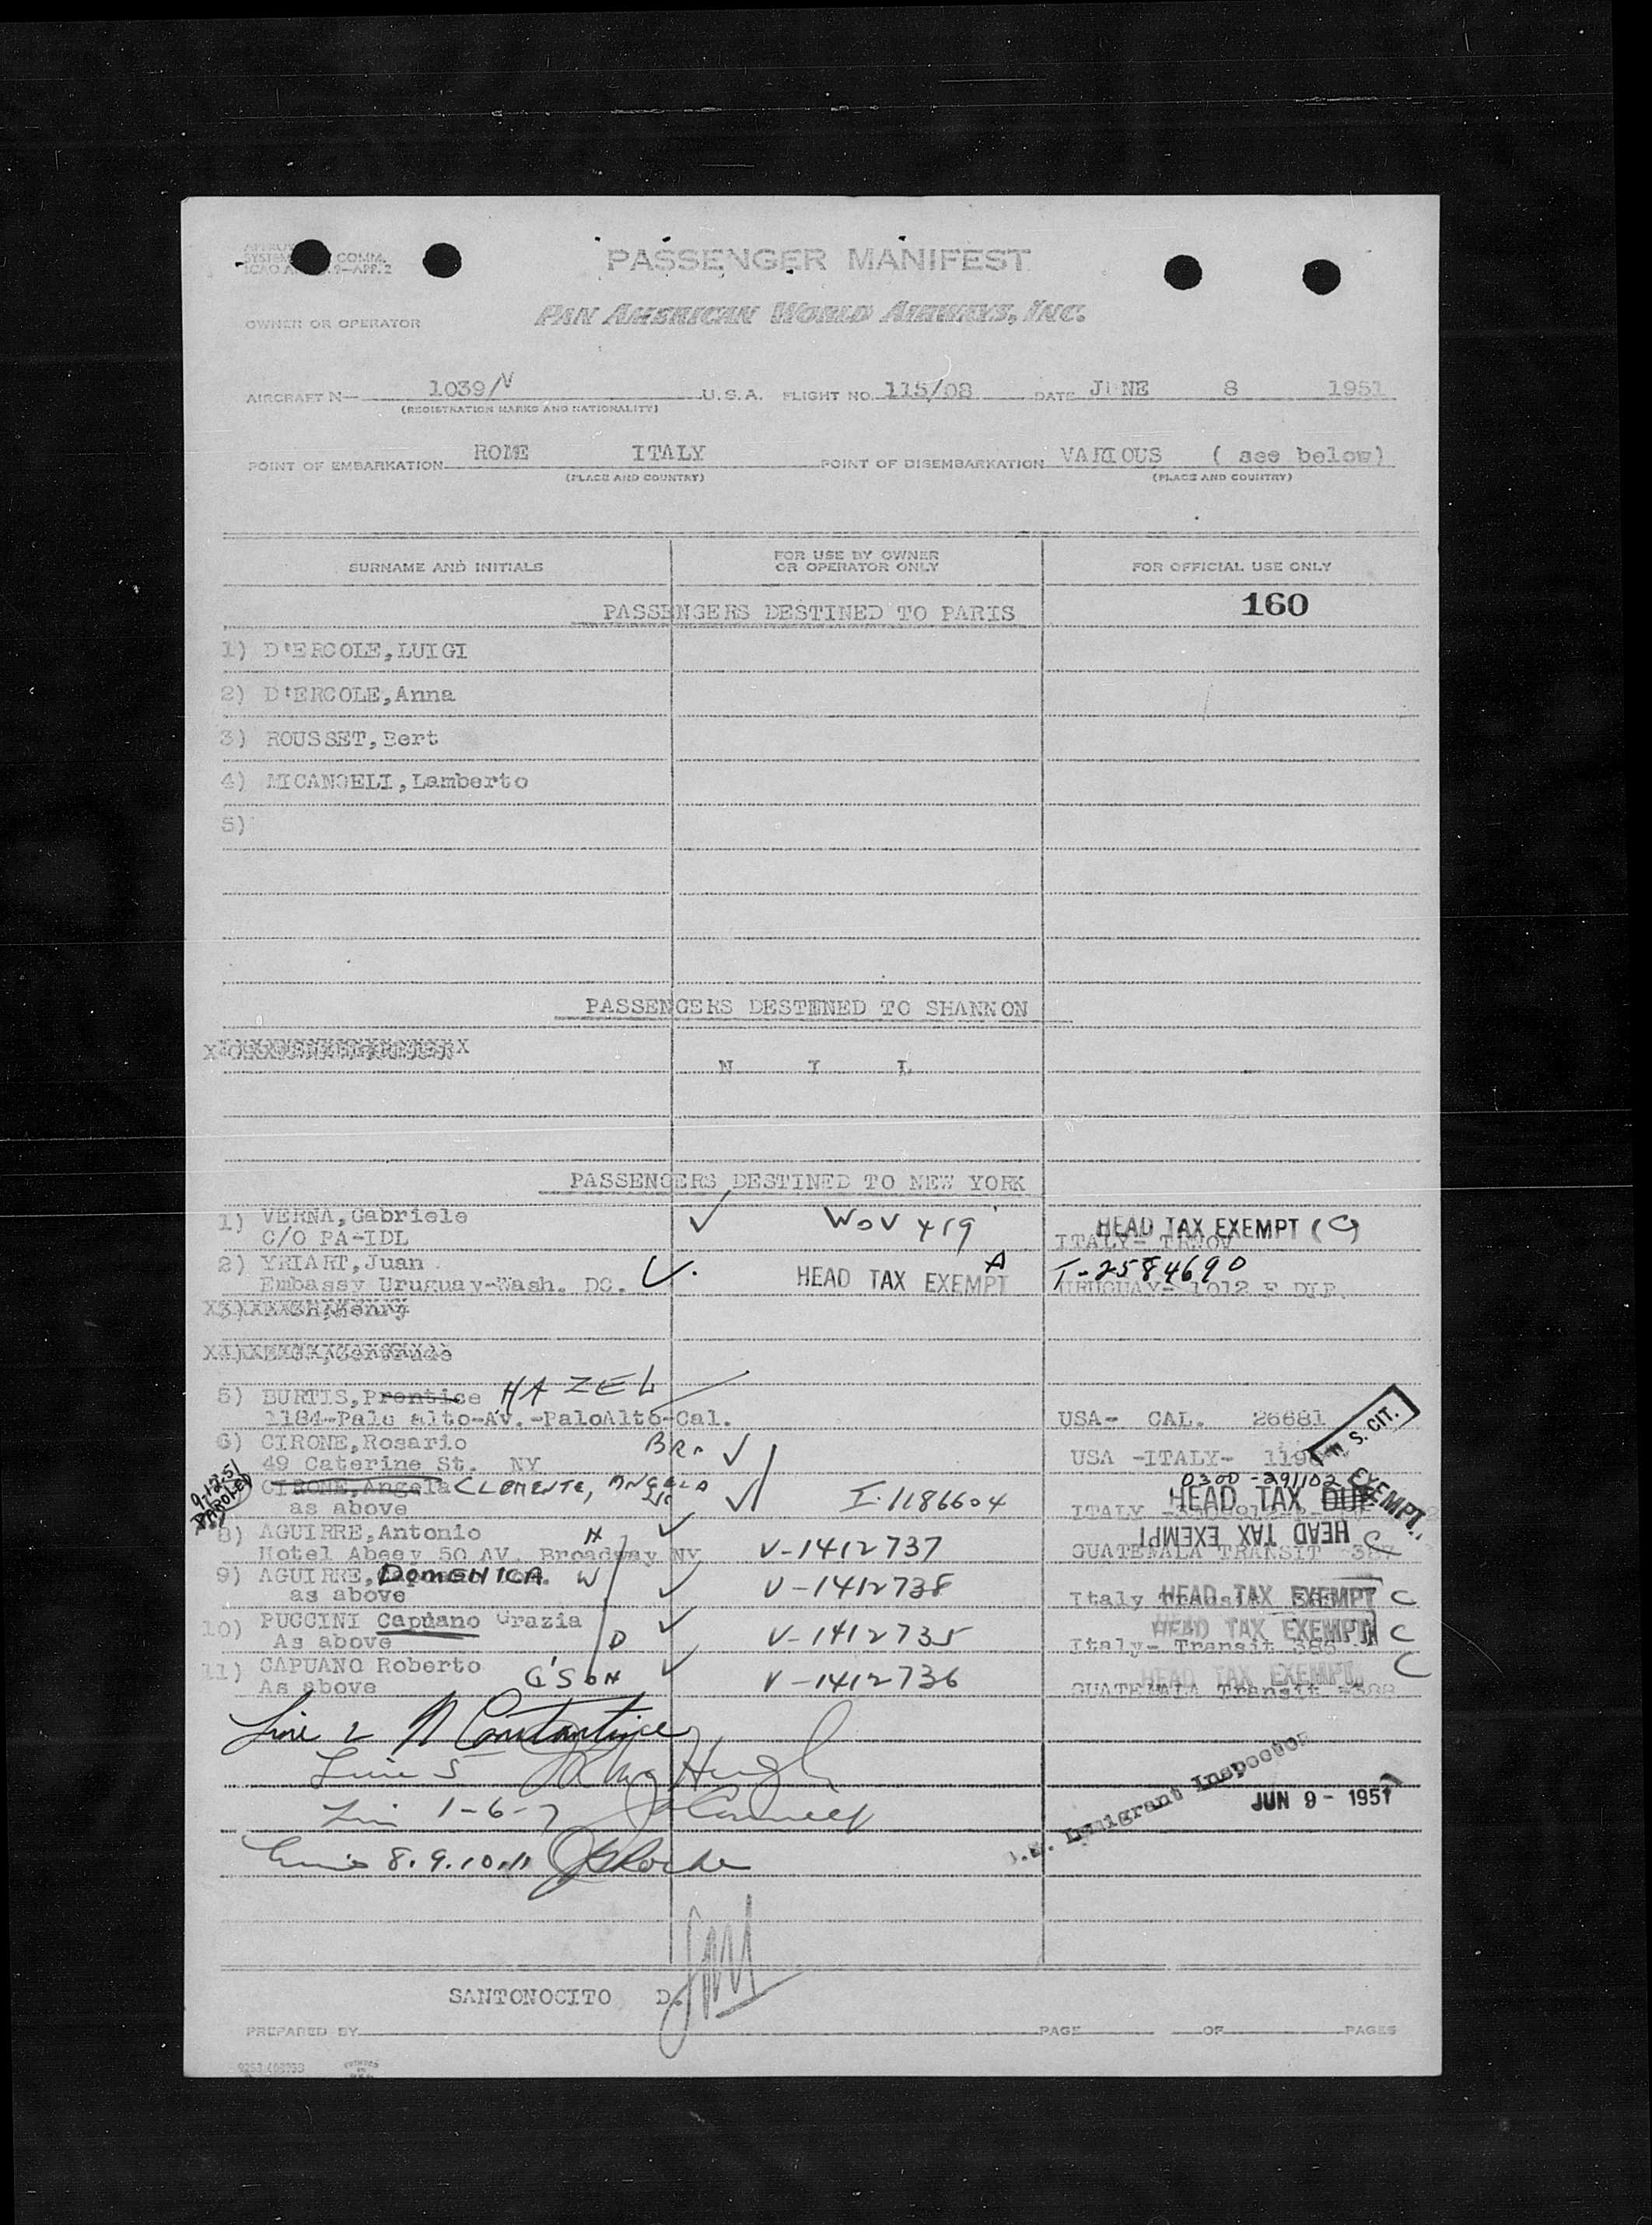 PASSENGER MANIFEST
COMM.
OWNER OR OPERATOR PAN AMERICAN WORLD AIRWAYS, INC.
AIRCRAFT N— 1039/V U.S.A. FLIGHT NO. 115/08 DATE JUNE 8 1951
(REGISTRATION MARKS AND NATIONALITY)
POINT OF EMBARKATION ROME ITALY POINT OF DISEMBARKATION VARIOUS ( see below)
(PLACE AND COUNTRY) (PLACE AND COUNTRY)
SURNAME AND INITIALS FOR USE BY OWNER OR OPERATOR ONLY FOR OFFICIAL USE ONLY
PASSENGERS DESTINED TO PARIS 160
1) D'ERCOLE,LUIGI
2) D'ERCOLE,Anna
3) ROUSSET,Bert
4) MICANGELI,Lamberto
5)
PASSENGERS DESTINED TO SHANNON
N I L
PASSENGERS DESTINED TO NEW YORK
1) VERNA,Gabriele ✓ HEAD TAX EXEMPT (C)
C/O PA-IDL ITALY-
2) YRIART,Juan A I-2584690
Embassy Uruguay-Wash. DC. HEAD TAX EXEMPT URUGUAY- 1012 DIP.
5) BURTIS,Prentice HAZEL
1184-Palo alto-Av.-PaloAlto-Cal. USA- CAL. 26681
U. S. CIT.
6) CIRONE,Rosario BR. ✓ USA -ITALY-
49 Caterine St. NY
9-12-51 PAROLED
CIRONE,Angela CLEMENTE, ANGELA ✓ I-1186604 0300-291102
as above HEAD TAX DUE EXEMPT.
ITALY
8) AGUIRRE,Antonio H ✓ V-1412737 HEAD TAX EXEMPT C
Hotel Abeey 50 AV. Broadway NY GUATEMALA TRANSIT 387
9) AGUIRRE, DOMENICA W ✓ V-1412738 HEAD TAX EXEMPT C
as above Italy
10) PUCCINI Capuano Grazia D ✓ V-1412735 HEAD TAX EXEMPT C
As above Italy- Transit 386
11) CAPUANO Roberto G'SON ✓ V-1412736 HEAD TAX EXEMPT C
As above GUATEMALA Transit
Line 2 N Constantine
Line 5
1-6-7
8.9.10.11
Immigrant Inspector
JUN 9 - 1951
SANTONOCITO D.
PREPARED BY PAGE OF PAGES